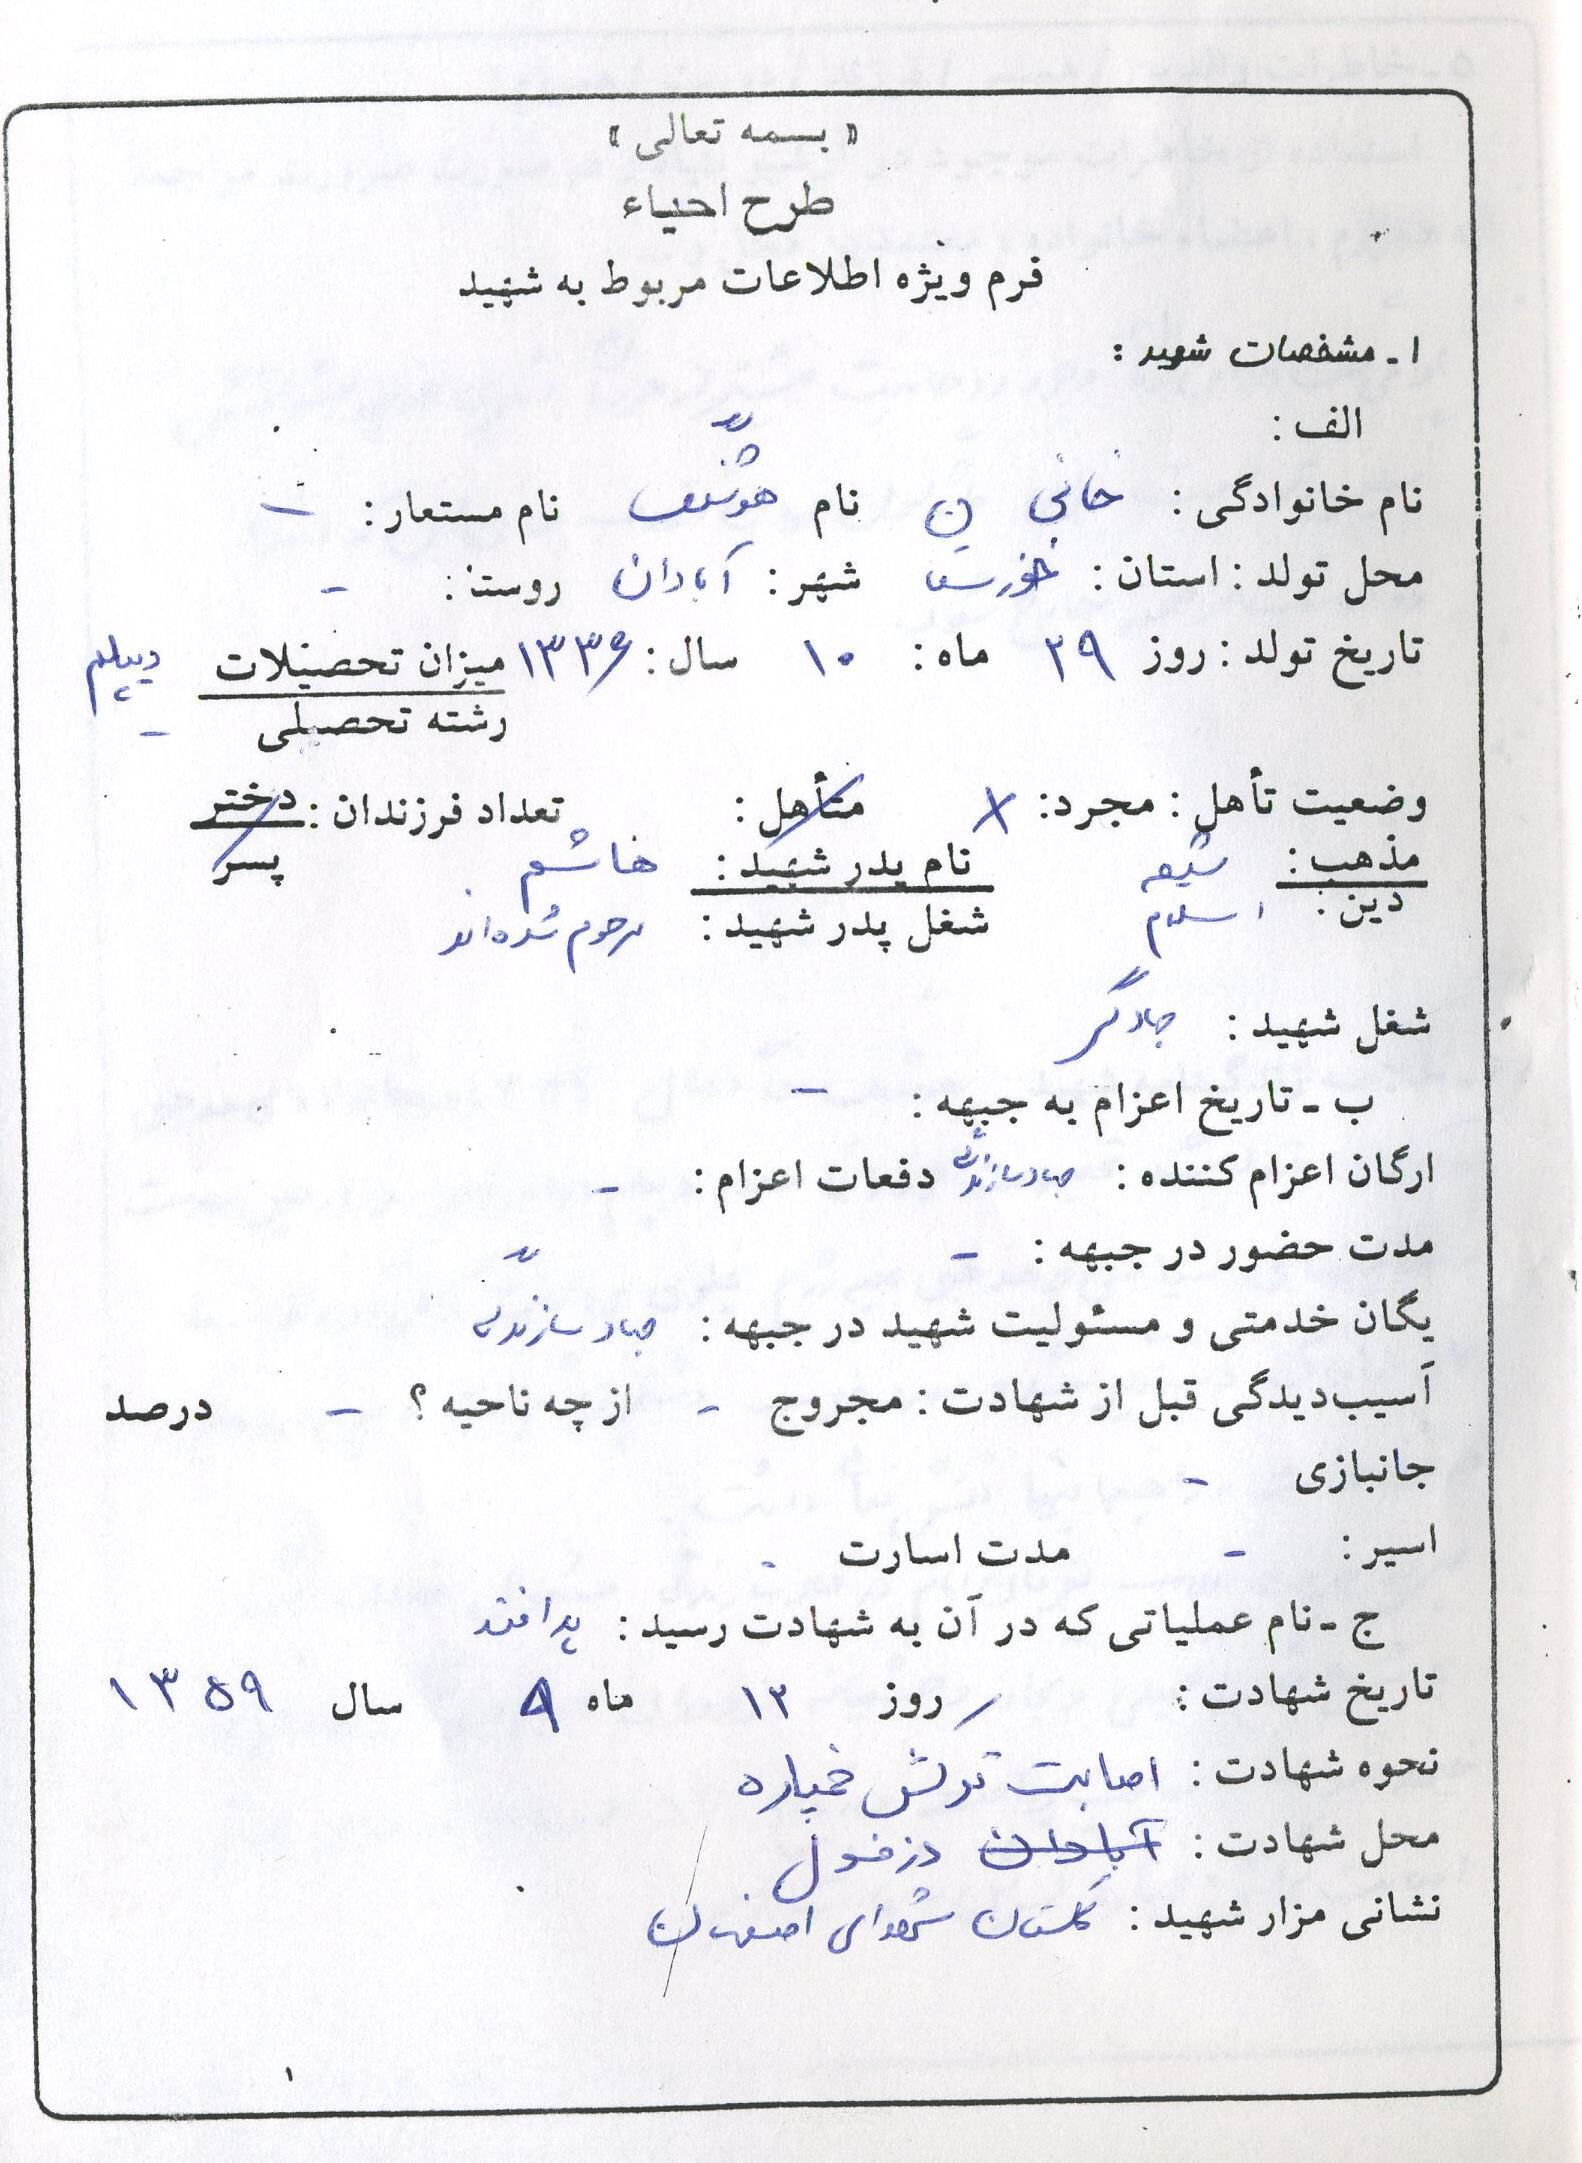 « بسمه تعالی »
طرح احیاء
فرم ویژه اطلاعات مربوط به شهید
۱ ـ مشخصات شهید :
الف :
نام خانوادگی : خانی نام هوشنگ نام مستعار : -
محل تولد : استان : خوزستان شهر : آبادان روستا : -
تاریخ تولد : روز ۲۹ ماه : ۱۰ سال : ۱۳۳۶ میزان تحصیلات دیپلم
رشته تحصیلی -
وضعیت تأهل : مجرد : × متأهل : تعداد فرزندان : دختر
پسر
مذهب : شیعه نام پدر شهید : هاشم
دین : اسلام شغل پدر شهید : مرحوم شده اند
شغل شهید : جهادگر
ب ـ تاریخ اعزام به جبهه : -
ارگان اعزام کننده : جهاد سازندگی دفعات اعزام : -
مدت حضور در جبهه : -
یگان خدمتی و مسئولیت شهید در جبهه : جهاد سازندگی
آسیب‌دیدگی قبل از شهادت : مجروح - از چه ناحیه ؟ - درصد
جانبازی -
اسیر : - مدت اسارت -
ج ـ نام عملیاتی که در آن به شهادت رسید : پدافند
تاریخ شهادت : / روز ۱۲ ماه ۹ سال ۱۳۵۹
نحوه شهادت : اصابت ترکش خمپاره
محل شهادت : آبادان دزفول
نشانی مزار شهید : گلستان شهدای اصفهان
۱